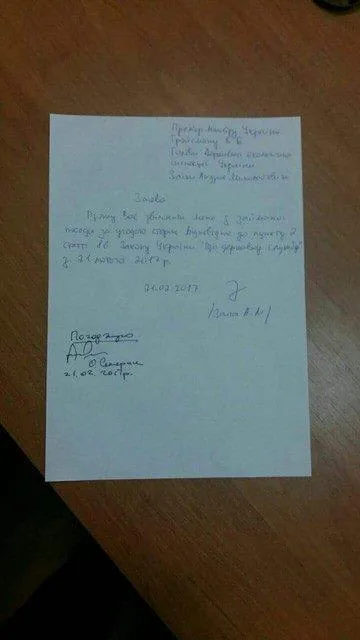 Прем'єр-міністру України
Гройсману В.Б
Голови Державної екологічної
інспекції України
Заїки Андрія Миколайовича
Заява
Прошу Вас звільнити мене з займаної
посади за угодою сторін відповідно до пункту 2
статті 86 Закону України "Про державну службу"
з 21 лютого 2017 р.
21.02.2017
/Заїка А.М/
Погоджую
О Семерак
21.02.2017р.